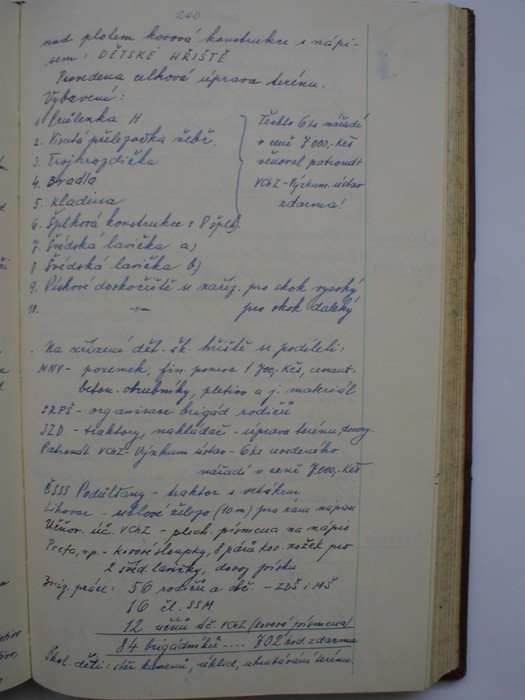 200
nad plotem kovová konstrukce s nápi-
sem: DĚTSKÉ HŘIŠTĚ
Provedena celková úprava terénu.
Vybavení:
1. Průlezka H
2. Visutá přelézačka žebř.
3. Trojhrazdička
4. Bradla
5. Kladina
6. Šplhová konstrukce s 8 šplh.
Těchto 6 ks nářadí
v ceně 7 000,- Kčs
věnoval patronát
VCHZ - Výzkum. ústav
zdarma!
7. Švédská lavička a)
8. Švédská lavička b)
9. Pískové doskočiště se naříz. pro skok vysoký
10. -"- pro skok daleký
Na zřízení dět. šk. hřiště se podíleli:
MNV - pozemek, fin. pomoc 1 700,- Kčs, cement.
beton. obrubníky, pletivo a j. materiál
SRPŠ - organisace brigád rodičů
JZD - traktory, nakládač - úprava terénu, dovoz
Patronát VCHZ: Výzkum ústav - 6 ks uvedeného
nářadí v ceně 7 000,- Kčs
ČSSS Poděšťany - traktor s vrtákem
Lihovar - úhlové železo (10 m) pro rám nápisu
Učňov. úč. VCHZ - plech. písmena na nápis
Prefa, np. - kovové sloupky, 8 párů kov. nožek pro
2 švéd. lavičky, dovoz písku
Brig. práce: 56 rodičů a obč. - ZDŠ i MŠ
16 čl. SSM
12 učňů úč. VCHZ (kovová písmena)
84 brigádníků .... 702 hod. zdarma
Škol. děti: sběr kamenů, úklid, uhrabávání terénu.